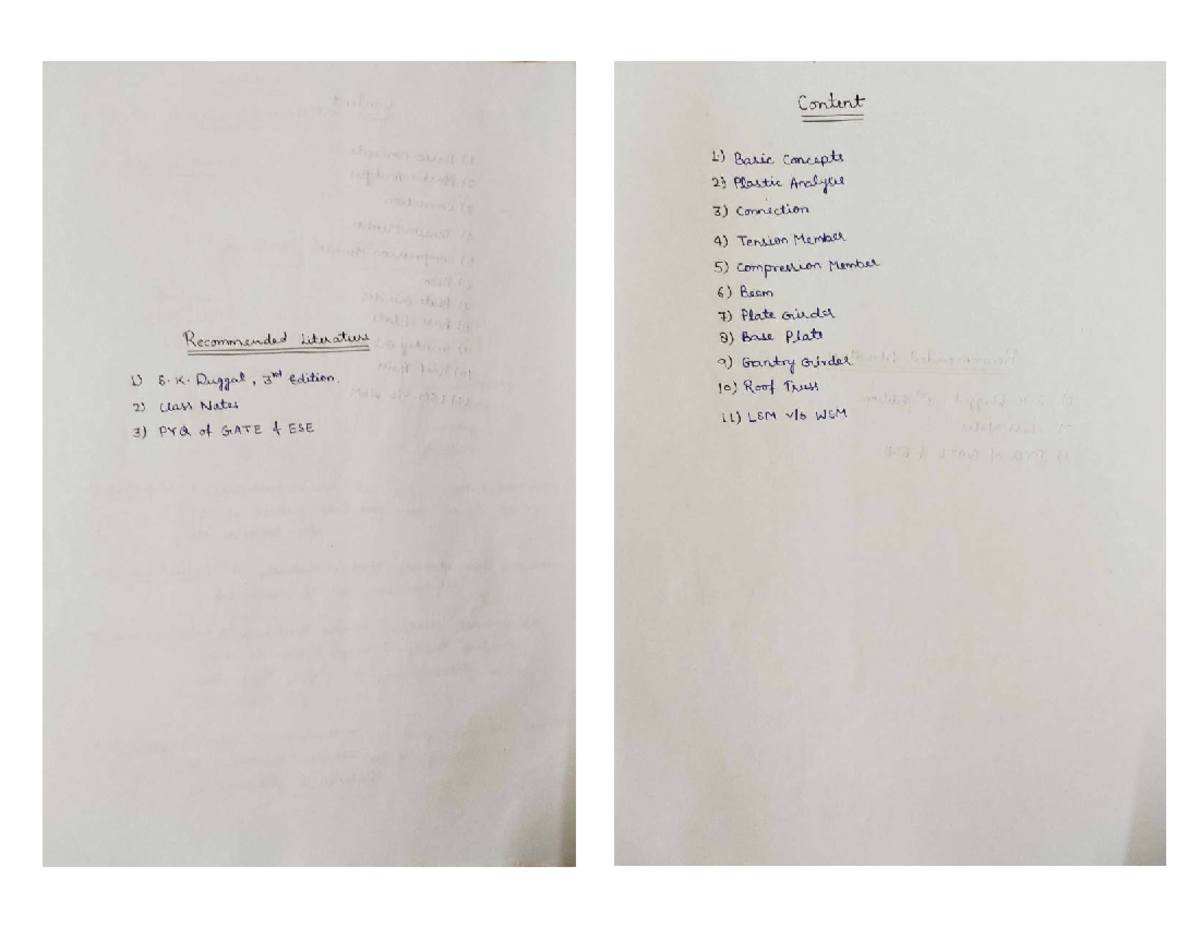 Recommended Literature
1) S.K. Duggal, 3rd Edition.
2) Class Notes
3) PYQ of GATE & ESE
Content
1) Basic Concepts
2) Plastic Analysis
3) Connection
4) Tension Member
5) Compression Member
6) Beam
7) Plate Girder
8) Base Plate
9) Gantry Grinder
10) Roof Truss
11) LSM v/s WSM